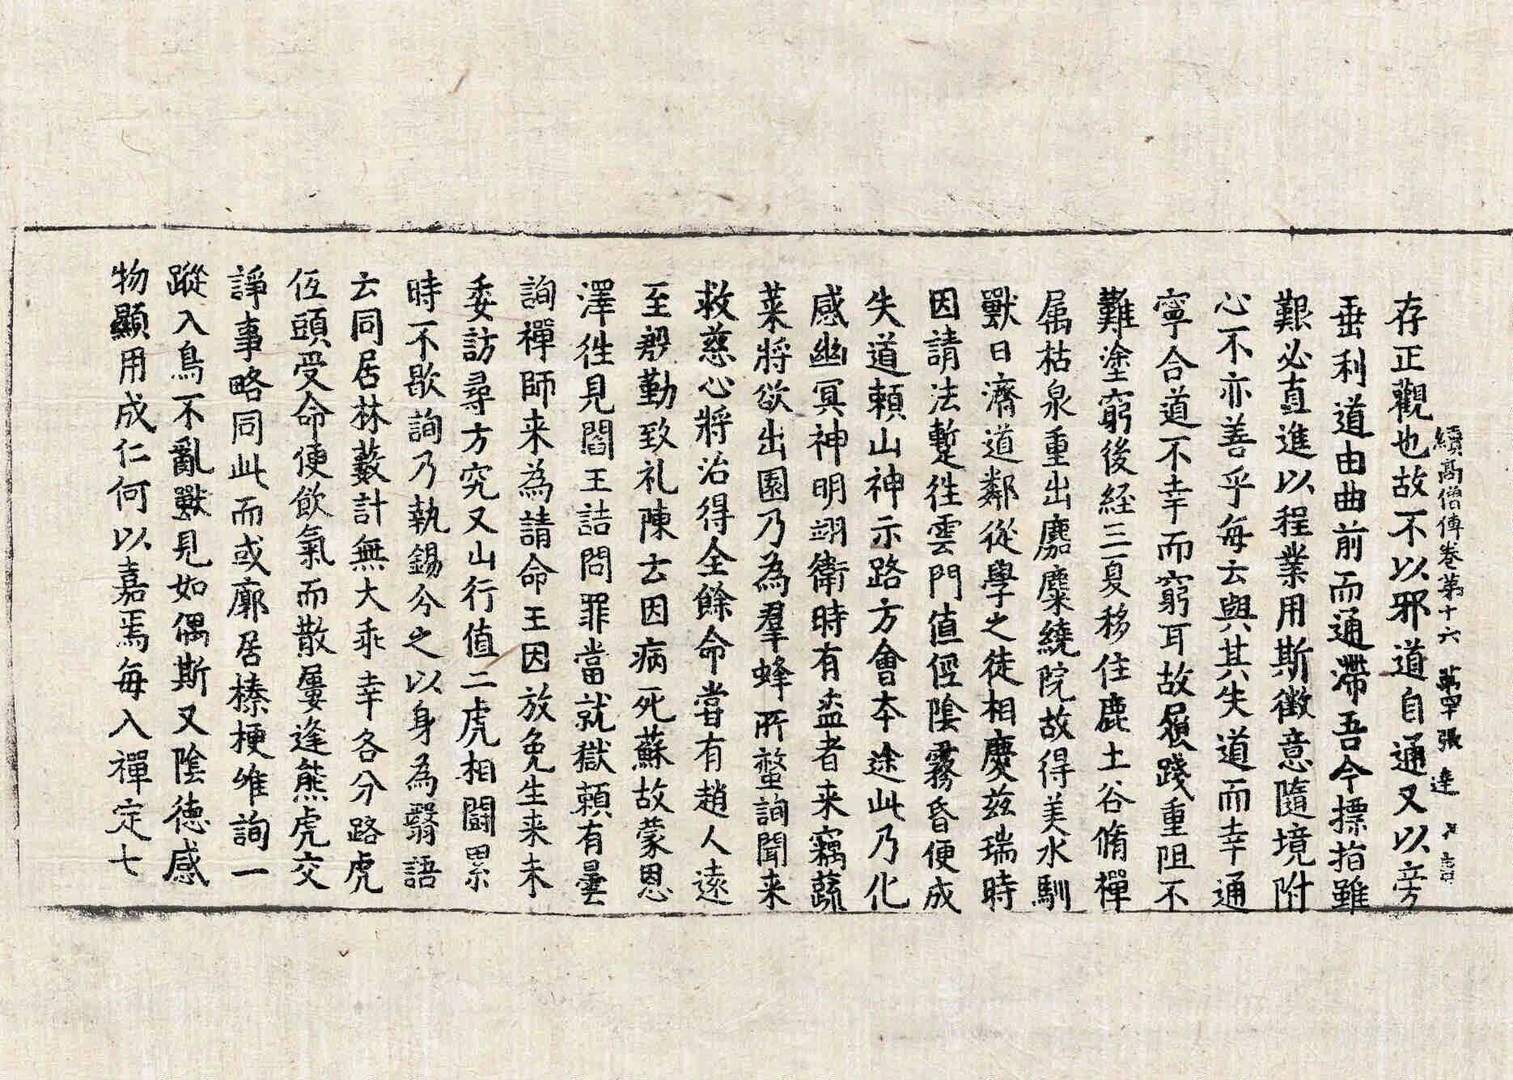 續高僧傳卷第十六 第四張 達
存正觀也故不以邪道自通又以旁
垂利道由曲前而通滯吾今摽指雖
艱必直進以程業用斯徵意隨境附
心不亦善乎每云與其失道而幸通
寧合道不幸而窮耳故履踐重阻不
難塗窮後経三夏移住鹿土谷脩禪
属枯泉重出麕麋繞院故得美水馴
獸日濟道鄰從學之徒相慶茲瑞時
因請法蹔往雲門值徑陰霧昏便成
失道賴山神示路方會本途此乃化
感幽冥神明翊衛時有盗者来竊蔬
菜將欲出園乃為羣蜂所螫詢聞来
救慈心將治得全餘命嘗有趙人遠
至殷勤致礼陳云因病死蘇故蒙恩
澤徃見閻王詰問罪當就獄賴有曇
詢禪師来為請命王因放免生来未
委訪尋方究又山行值二虎相鬪累
時不歇詢乃執錫分之以身為翳語
云同居林藪計無大乖幸各分路虎
伍頭受命便飲氣而散屢逢熊虎交
諍事略同此而或廓居榛梗唯詢一
蹤入鳥不亂獸見如偶斯又陰德感
物顯用成仁何以嘉焉每入禪定七